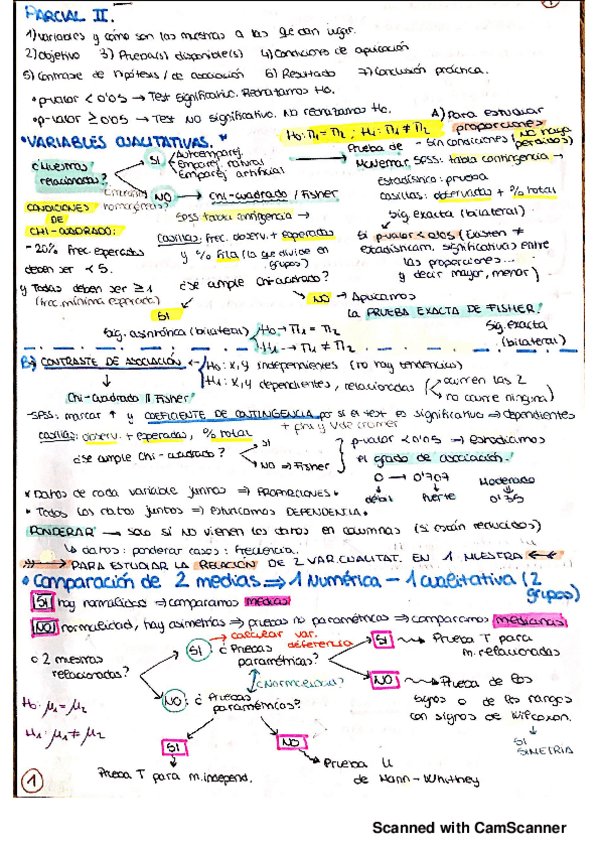 PARCIAL II.
1) variables y cómo son las muestras a las que dan lugar.
2) objetivo 3) Prueba(s) disponible(s) 4) Condiciones de aplicación
5) Contraste de hipótesis / de asociación 6) Resultado 7) Conclusión práctica.
• p-valor < 0'05 → Test significativo. Rechazamos H0.
• p-valor ≥ 0'05 → Test NO significativo. No rechazamos H0.
A) Para estudiar proporciones
H0: Π1 = Π2 ; H1: Π1 ≠ Π2
*VARIABLES CUALITATIVAS.*
¿Muestras relacionadas?
SI
Autoemparej.
Emparej. natural
Emparej. artificial
Prueba de McNemar.
- Sin condiciones (No haya perdidos)
SPSS: tabla contingencia →
estadístico: prueba
casillas: observadas + % total
sig. exacta (bilateral)
Si p-valor < 0'05 (Existen ≠ estadísticam. significativas entre las proporciones...
y decir mayor, menor)
NO → Chi-cuadrado / Fisher
SPSS tabla contingencia →
casillas: frec. observ. + esperadas
y % fila (la que divide en grupos)
CONDICIONES DE CHI-CUADRADO:
- 20% frec. esperadas deben ser < 5.
y Todas deben ser ≥ 1
(frec. mínima esperada)
¿Se cumple Chi-cuadrado?
SI
NO → Aplicamos
la PRUEBA EXACTA DE FISHER!
Sig. exacta (bilateral)
Sig. asintónica (bilateral)
H0 → Π1 = Π2
H1 → Π1 ≠ Π2
B) CONTRASTE DE ASOCIACIÓN
H0: X, Y independientes (no hay tendencias)
H1: X, Y dependientes, relacionadas
ocurren las 2
no ocurre ninguna
Chi-cuadrado // Fisher!
-SPSS: marcar ↑ y COEFICIENTE DE CONTINGENCIA por si el test es significativo ⇒ dependientes
+ phi y V de cramer
casillas: observ. + esperadas, % total
¿Se cumple Chi-cuadrado?
SI
NO ⇒ Fisher
p-valor < 0'05 ⇒ estudiamos
el grado de asociación!
0 → 0'707
débil fuerte
Moderado
0'35
* Datos de cada variable juntos ⇒ PROPORCIONES *
* Todos los datos juntos ⇒ Estudiamos DEPENDENCIA *
PONDERAR → solo si NO vienen los datos en columnas (si están reducidos)
↳ datos: ponderar casos: frecuencia.
PARA ESTUDIAR LA RELACIÓN DE 2 VAR. CUALITAT. EN 1 MUESTRA
• Comparación de 2 medias ⇒ 1 Numérica - 1 cualitativa (2 grupos)
SI hay normalidad ⇒ comparamos MEDIAS
NO normalidad, hay asimetrías ⇒ pruebas no paramétricas ⇒ comparamos medianas
calcular var. diferencia
o 2 muestras relacionadas?
SI: ¿Pruebas paramétricas?
SI → Prueba T para m. relacionadas
¿Normalidad?
NO → Prueba de los signos o de los rangos con signos de Wilcoxon.
SI SIMETRIA
NO: ¿Pruebas paramétricas?
H0: μ1 = μ2
H1: μ1 ≠ μ2
SI
NO
Prueba T para m. independ.
Prueba U de Mann-Whitney
1
Scanned with CamScanner